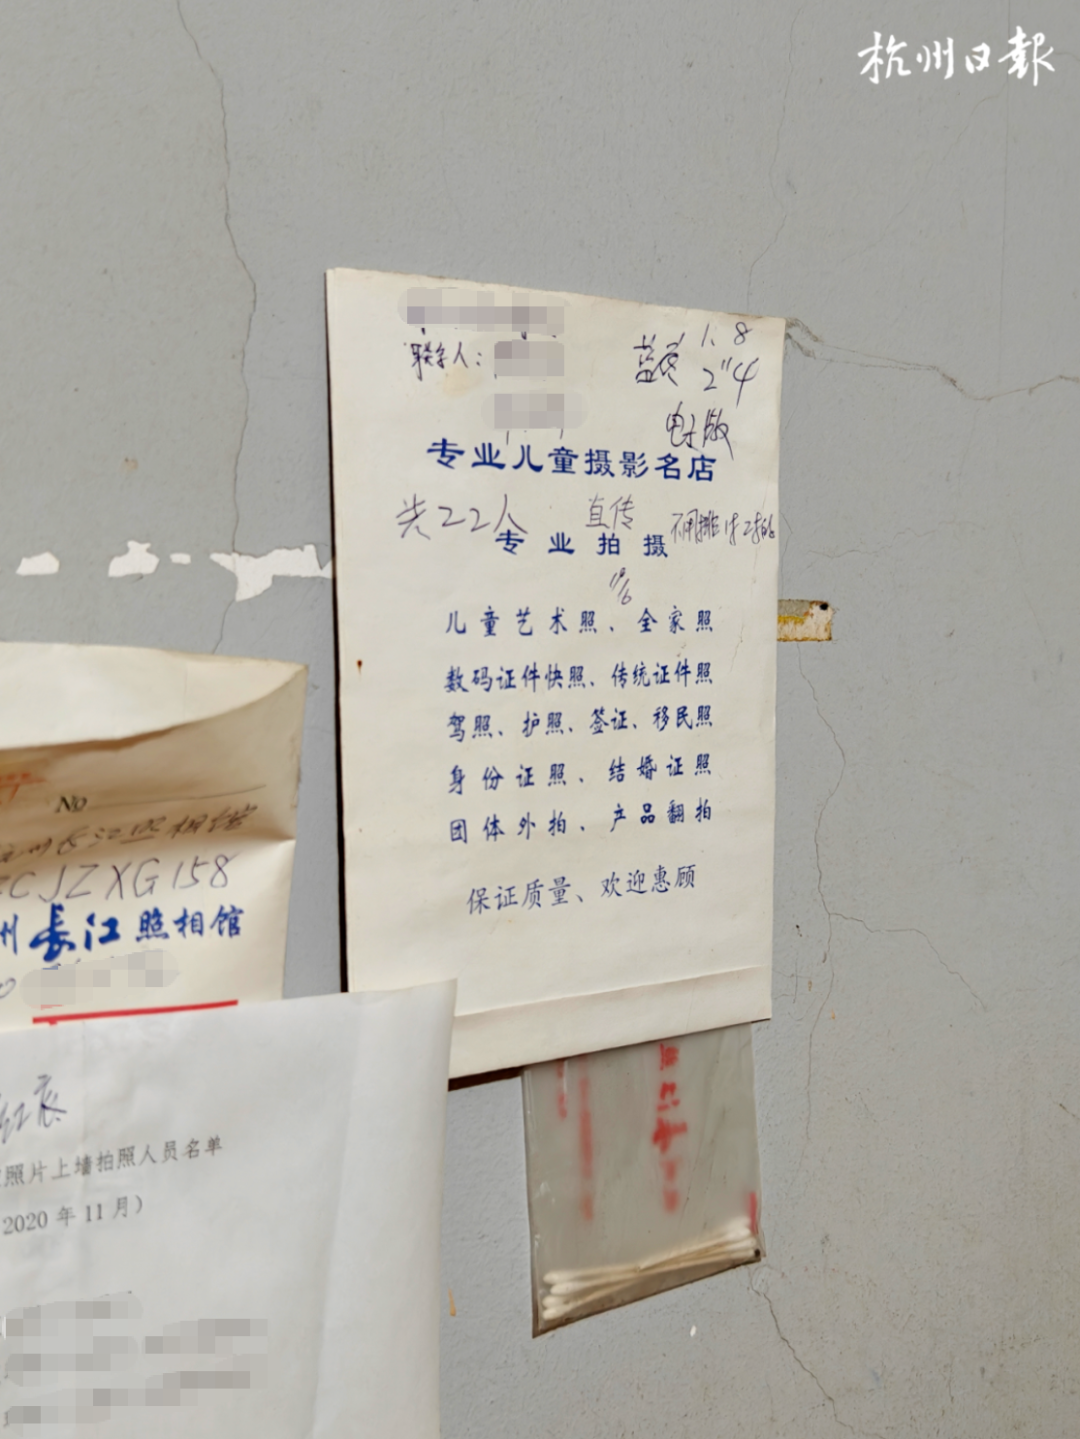 杭州日報
联系人：
蓝底 1. 8
2" 4
电子版
专业儿童摄影名店
共22人 直传
专业拍摄
儿童艺术照、全家照
数码证件快照、传统证件照
驾照、护照、签证、移民照
身份证照、结婚证照
团体外拍、产品翻拍
保证质量、欢迎惠顾
No
长江照相馆
CJZXG158
州長江照相馆
照片上墙拍照人员名单
2020年11月）